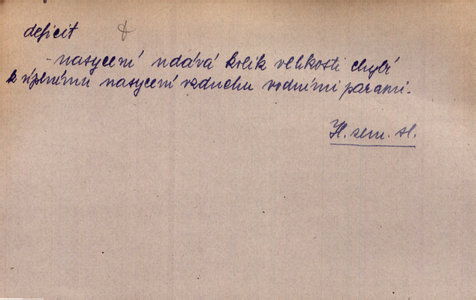 deficit
- nasycení udává kolik vlhkosti chybí
k úplnému nasycení vzduchu vodními parami.
Hl. zem. sl.